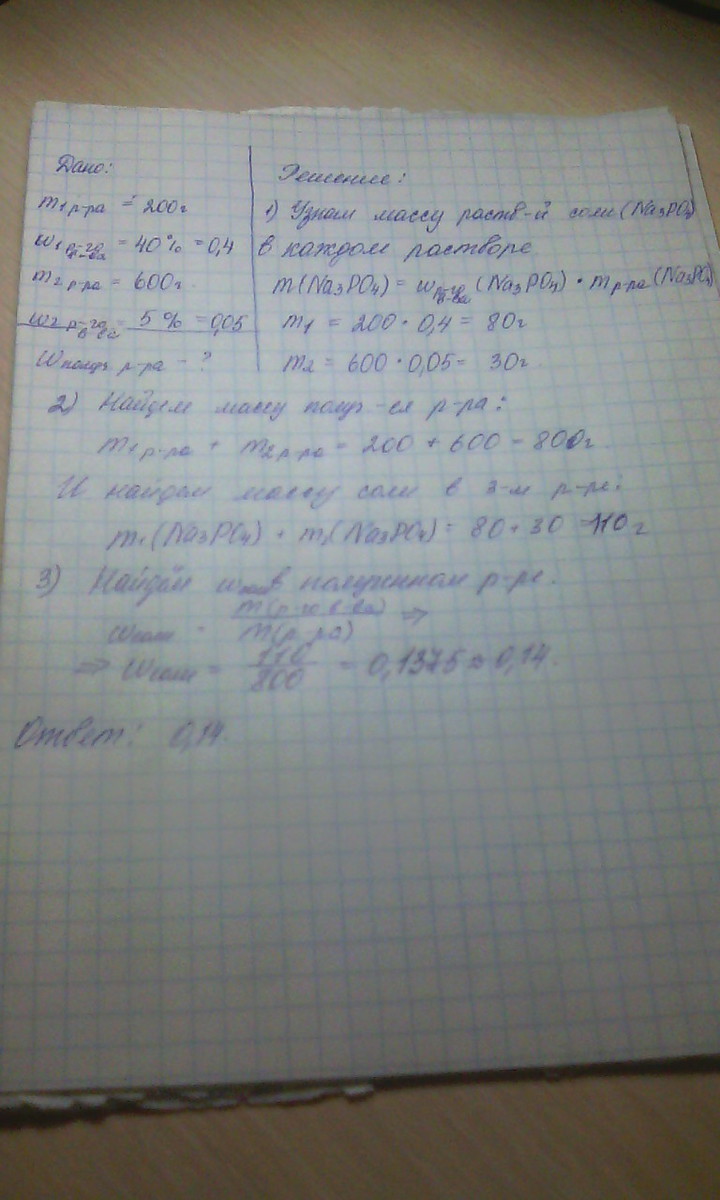 Дано:
m₁ р-ра = 200г
w₁ р-го в-ва = 40% = 0,4
m₂ р-ра = 600г
w₂ р-го в-ва = 5% = 0,05
wполуч р-ра - ?
Решение:
1) Узнаем массу раств-й соли (Na₃PO₄)
в каждом растворе.
m(Na₃PO₄) = wр-го в-ва (Na₃PO₄) · mр-ра (Na₃PO₄)
m₁ = 200 · 0,4 = 80г
m₂ = 600 · 0,05 = 30г
2) Найдем массу получ-ся р-ра:
m₁ р-ра + m₂ р-ра = 200 + 600 = 800г.
И найдем массу соли в 3-м р-ре:
m₁(Na₃PO₄) + m₂(Na₃PO₄) = 80 + 30 = 110 г
3) Найдём w в полученном р-ре.
wсоли = m(р-го в-ва) / m(р-ра) ⇒
⇒ wсоли = 110 / 800 = 0,1375 ≈ 0,14.
Ответ: 0,14.